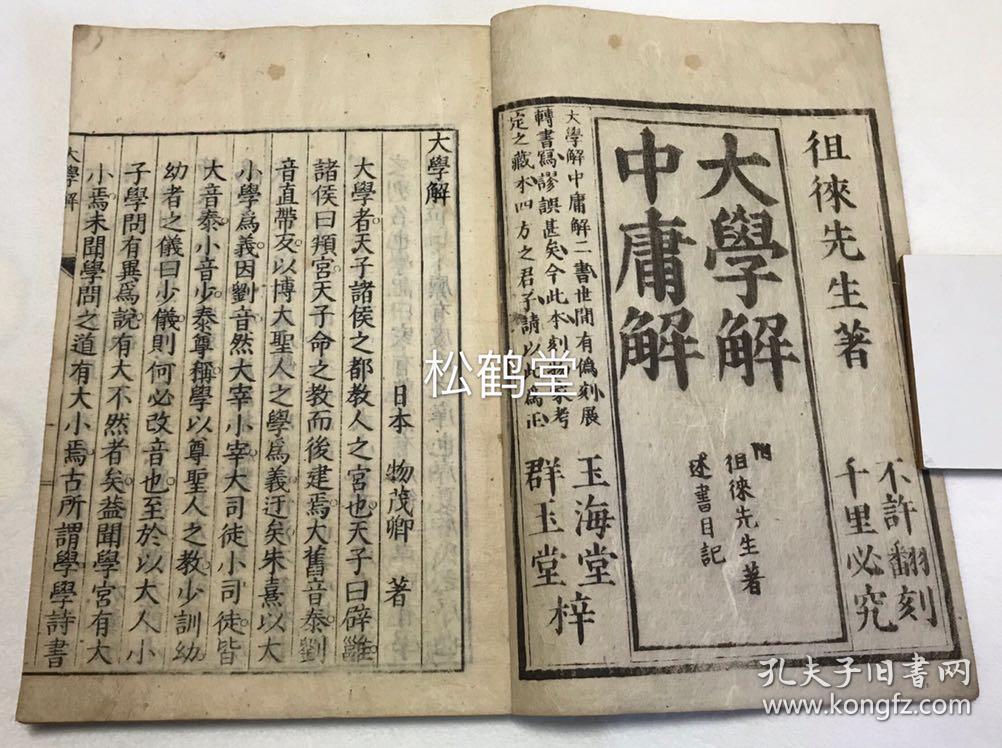 徂徠先生著
不許翻刻
千里必究
大學解
中庸解
附
徂徠先生著
述書目記
大學解中庸解二書世間有偽刻展
轉書寫謬誤甚矣今此本刻物家考
定之藏本四方之君子請以此為正
玉海堂
群玉堂
梓
大學解
日本 物茂卿 著
大學者天子諸侯之都教人之宮也天子曰辟雝
諸侯曰頖宮天子命之教而後建焉大舊音泰劉
音直帶友以博大聖人之學爲義迂矣朱熹以大
小學爲義因劉音然大宰小宰大司徒小司徒皆
大音泰小音少泰尊稱學以尊聖人之教少訓幼
幼者之儀曰少儀則何必改音也至於以大人小
子學問有異爲說有大不然者矣葢聞學宮有大
小焉未聞學問之道有大小焉古所謂學學詩書
大學解
松鹤堂
孔夫子旧书网
www.kongfz.com